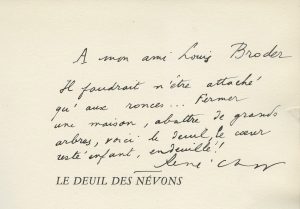 A mon ami Louis Broder
Il faudrait n'être attaché
qu'aux ronces... Fermer
une maison, abattre de grands
arbres, voici le deuil, le cœur
resté enfant, endeuillé!
René Char
LE DEUIL DES NÉVONS